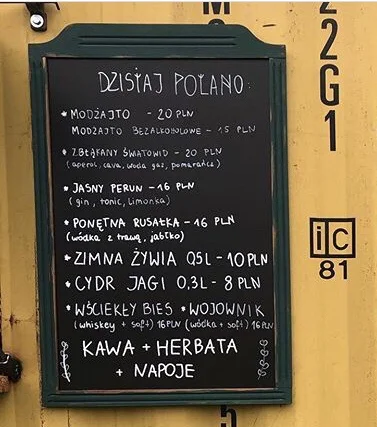 M
2
2
G
1
iC
81
5
DZISIAJ POLANO:
* MODŻAJTO - 20 PLN
MODŻAJTO BEZALKOHOLOWE - 15 PLN
* ZBŁĄKANY ŚWIATOWID - 20 PLN
(aperol, cava, woda gaz, pomarańcz)
* JASNY PERUN - 16 PLN
(gin, tonic, limonka)
* PONĘTNA RUSAŁKA - 16 PLN
(wódka z trawą, jabłko)
* ZIMNA ŻYWIA 0,5L - 10 PLN
* CYDR JAGI 0,3L - 8 PLN
* WŚCIEKŁY BIES * WOJOWNIK
(whiskey + soft) 16 PLN (wódka + soft) 16 PLN
KAWA + HERBATA
+ NAPOJE